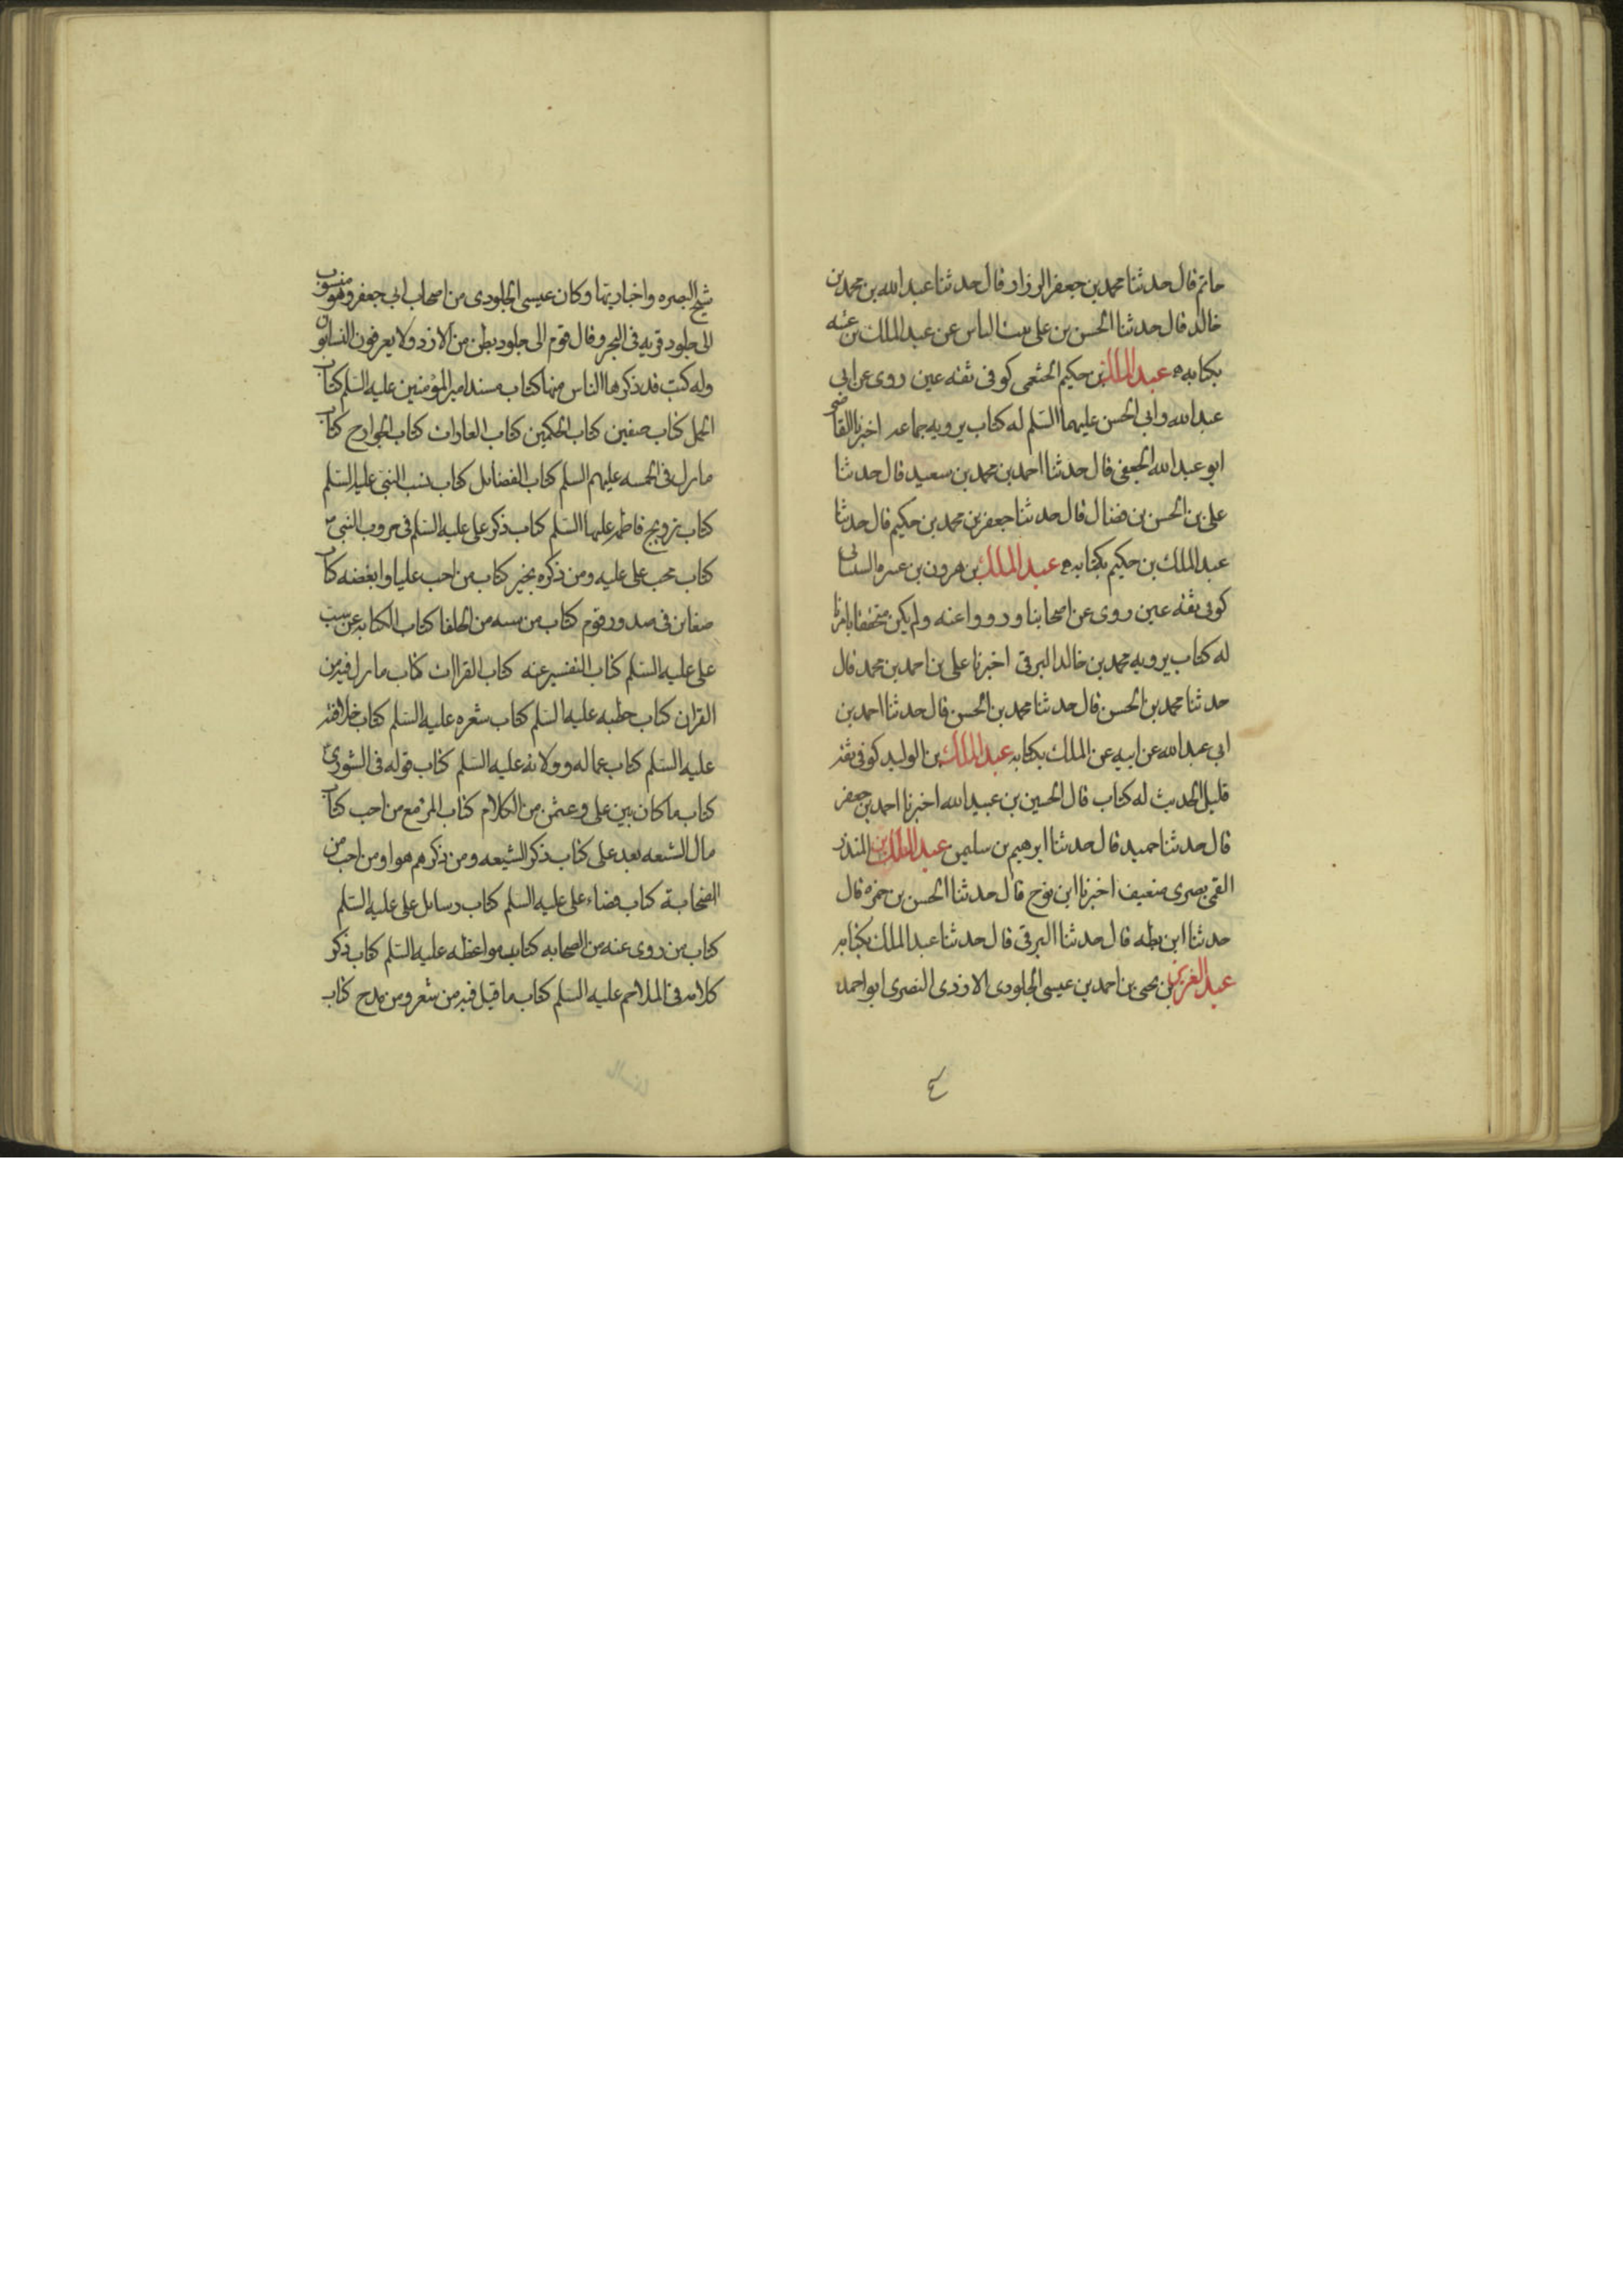 حاتم قال حدثنا محمد بن جعفر الرزاز قال حدثنا عبد الله بن محمد بن
خالد قال حدثنا الحسن بن علي بنت الياس عن عبد الملك بن عتبه
بكتابه عبد الملك بن حكيم الخثعمي كوفي ثقه عين روى عن ابي
عبد الله وابي الحسن عليهما السلم له كتاب يرويه جماعه اخبرنا القاضي
ابو عبد الله الجعفي قال حدثنا احمد بن محمد بن سعيد قال حدثنا
علي بن الحسن بن فضال قال حدثنا جعفر بن محمد بن حكيم قال حدثنا
عبد الملك بن حكيم بكتابه عبد الملك بن هرون بن عنتره الشيباني
كوفى ثقه عين روى عن اصحابنا ورووا عنه ولم يكن متحققا بامرنا
له كتاب يرويه محمد بن خالد البرقى اخبرنا على بن احمد بن محمد قال
حدثنا محمد بن الحسن قال حدثنا محمد بن الحسن قال حدثنا احمد بن
ابي عبد الله عن ابيه عن الملك بكتابه عبد الملك بن الوليد كوفى ثقه
قليل الحديث له كتاب قال الحسين بن عبيد الله اخبرنا احمد بن جعفر
قال حدثنا حميد قال حدثنا ابرهيم بن سليمن عبد الملك بن المنذر
القمى بصرى ضعيف اخبرنا ابن نوح قال حدثنا الحسن بن حمزه قال
حدثنا ابن بطه قال حدثنا البرقى قال حدثنا عبد الملك بكتابه
عبد العزيز بن يحيى بن احمد بن عيسى الجلودى الازدى النصرى ابو احمد
شيخ البصره واخباريها وكان عيسى الجلودى من اصحاب ابى جعفر وهو منسوب
الى جلود قريه فى البحر وقال قوم الى جلود بطن من الازد ولا يعرفون النسابون
وله كتب قد ذكرها الناس منها كتاب مسند امير المؤمنين عليه السلم كتاب
الجمل كتاب صفين كتاب الحكمين كتاب الغارات كتاب الخوارج كتاب
ما نزل فى الخمسه عليهم السلم كتاب الفضائل كتاب نسب النبى عليه السلم
كتاب تزويج فاطمه عليها السلم كتاب ذكر على عليه السلم فى حروب النبى
كتاب محب على عليه ومن ذكره بخير كتاب من احب عليا وابغضه كتاب
ضغاين فى صدور قوم كتاب من سبه من الخلفا كتاب الكنايه عن سب
على عليه السلم كتاب التفسير عنه كتاب القراات كتاب ما نزل فيه من
القران كتاب خطبه عليه السلم كتاب شعره عليه السلم كتاب خلافته
عليه السلم كتاب عماله وولاته عليه السلم كتاب قوله فى الشورى
كتاب ما كان بين على وعثمن من الكلام كتاب المرء مع من احب كتاب
مال الشيعه بعد على كتاب ذكر الشيعه ومن ذكرهم هو او من احب من
الصحابة كتاب قضاء على عليه السلم كتاب رسايل على عليه السلم
كتاب من روى عنه من الصحابه كتاب مواعظه عليه السلم كتاب ذكر
كلامه فى الملاحم عليه السلم كتاب ما قيل فيه من شعر ومن مدح كتاب